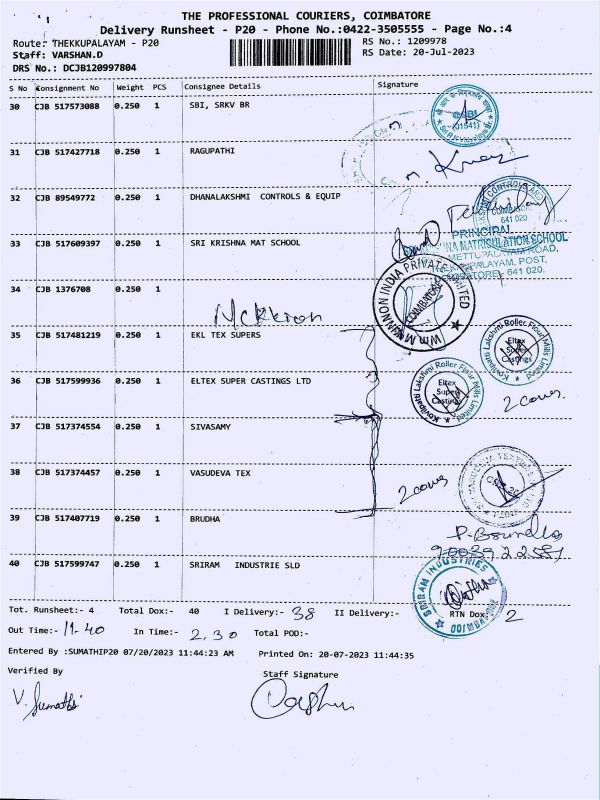 THE PROFESSIONAL COURIERS, COIMBATORE
Delivery Runsheet - P20 - Phone No.:0422-3505555 - Page No.:4
Route: THEKKUPALAYAM - P20 RS No.: 1209978
Staff: VARSHAN.D RS Date: 20-Jul-2023
DRS No.: DCJB120997804
S No Consignment No Weight PCS Consignee Details Signature
30 CJB 517573088 0.250 1 SBI, SRKV BR
SBI
(01541)
31 CJB 517427718 0.250 1 RAGUPATHI
32 CJB 89549772 0.250 1 DHANALAKSHMI CONTROLS & EQUIP
641 020
33 CJB 517609397 0.250 1 SRI KRISHNA MAT SCHOOL
PRINCIPAL
MATRICULATION SCHOOL
METTUPALAYAM ROAD,
POST,
641 020.
34 CJB 1376708 0.250 1
INDIA PRIVATE LIMITED
COIMBATORE
35 CJB 517481219 0.250 1 EKL TEX SUPERS
Kovilpatti Lakshmi Roller Flour Mills Limited
Eltex Super Castings
36 CJB 517599936 0.250 1 ELTEX SUPER CASTINGS LTD
Kovilpatti Lakshmi Roller Flour Mills Limited
Eltex Super Castings
2 covers.
37 CJB 517374554 0.250 1 SIVASAMY
38 CJB 517374457 0.250 1 VASUDEVA TEX
2 covers
39 CJB 517407719 0.250 1 BRUDHA
40 CJB 517599747 0.250 1 SRIRAM INDUSTRIE SLD
SRIRAM INDUSTRIES
Tot. Runsheet:- 4 Total Dox:- 40 I Delivery:- 38 II Delivery:- RTN Dox: 2
Out Time:- 11.40 In Time:- 2.30 Total POD:-
Entered By :SUMATHIP20 07/20/2023 11:44:23 AM Printed On: 20-07-2023 11:44:35
Verified By Staff Signature
V. Sumathi